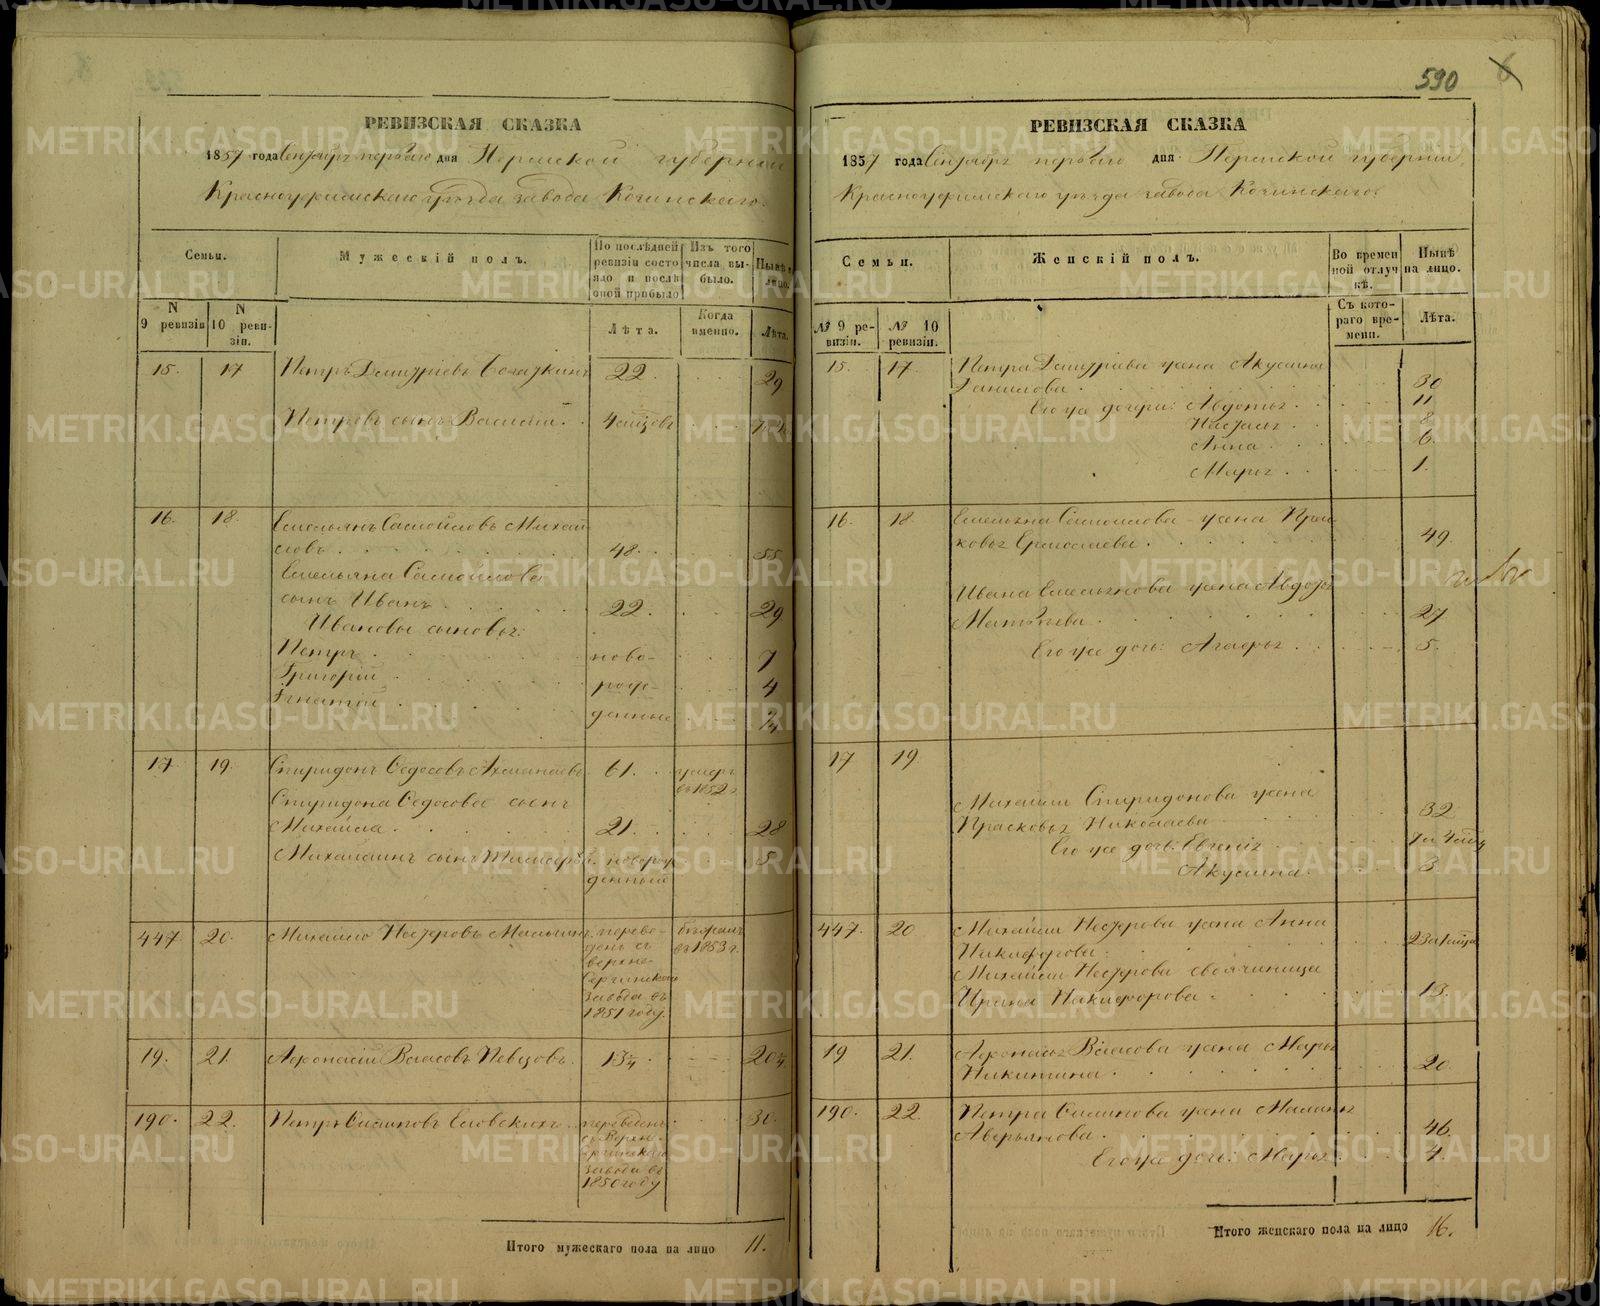 590 6
РЕВИЗСКАЯ СКАЗКА
1857 года Сентября перваго дня Пермской губерніи
Красноуфимскаго уѣзда завода
Семьи.
Мужескій полъ.
По послѣдней ревизіи состояло и послѣ оной прибыло
Изъ того числа выбыло.
Нынѣ на лицо.
N 9 ревизіи
N 10 ревизіи.
Лѣта.
Когда именно.
Лѣта.
15. 17 Петръ Дмитріевъ 22. 29
Петровъ сынъ Василій
16. 18. Емельянъ Самойловъ Михай
ловъ 48. 55
Емельяна Самойлова
сынъ Иванъ 22. 29
Ивановы сыновья:
Петръ ново- 7
Григорій рож- 4
Игнатій денные
17 19. Спиридонъ Федосовъ 61. умеръ въ 1852 г.
Спиридона Федосова сынъ
Михайла 21. 28
Михайлинъ сынъ новорожденный 5
447. 20. Михайло Несторовъ переведенъ съ Верхне-Сергинскаго завода въ 1851 году. въ 1853 г.
19. 21. Афонасій Власовъ Певцовъ. 13 3/4 20 3/4
190. 22. Петръ переведенъ съ Верхне-Сергинскаго завода въ 1850 году 30.
Итого мужескаго пола на лицо 11.
РЕВИЗСКАЯ СКАЗКА
1857 года Сентября перваго дня Пермской губерніи,
Красноуфимскаго уѣзда завода
Семьи.
Женскій полъ.
Во временной отлучкѣ.
Нынѣ на лицо.
№ 9 ревизіи.
№ 10 ревизіи.
Съ котораго времени.
Лѣта.
15. 17. Петра Дмитріева жена Акулина
Данилова 30
Его же дочери: Авдотья 11
Настасья 8
Анна 6.
Марья 1.
16. 18 Емельяна Самойлова жена Прас
ковья Ермолаева 49
Ивана Емельянова жена Авдотья
Матвѣева 27
Его же дочь: Агафья 5.
17 19
Михайла Спиридонова жена
Прасковья Николаева 32
Его же дочь: Евгенія
Акулина 3
447. 20 Михайла Несторова жена Анна
Никифорова:
Михайла Несторова своячиница
Ирина Никифорова 13.
19 21. Афонасья Власова жена Марья
Никитина 20
190. 22. Петра жена
Аверьянова 46.
Его же дочь: Марья 4.
Итого женскаго пола на лицо 16.
METRIKI.GASO-URAL.RU